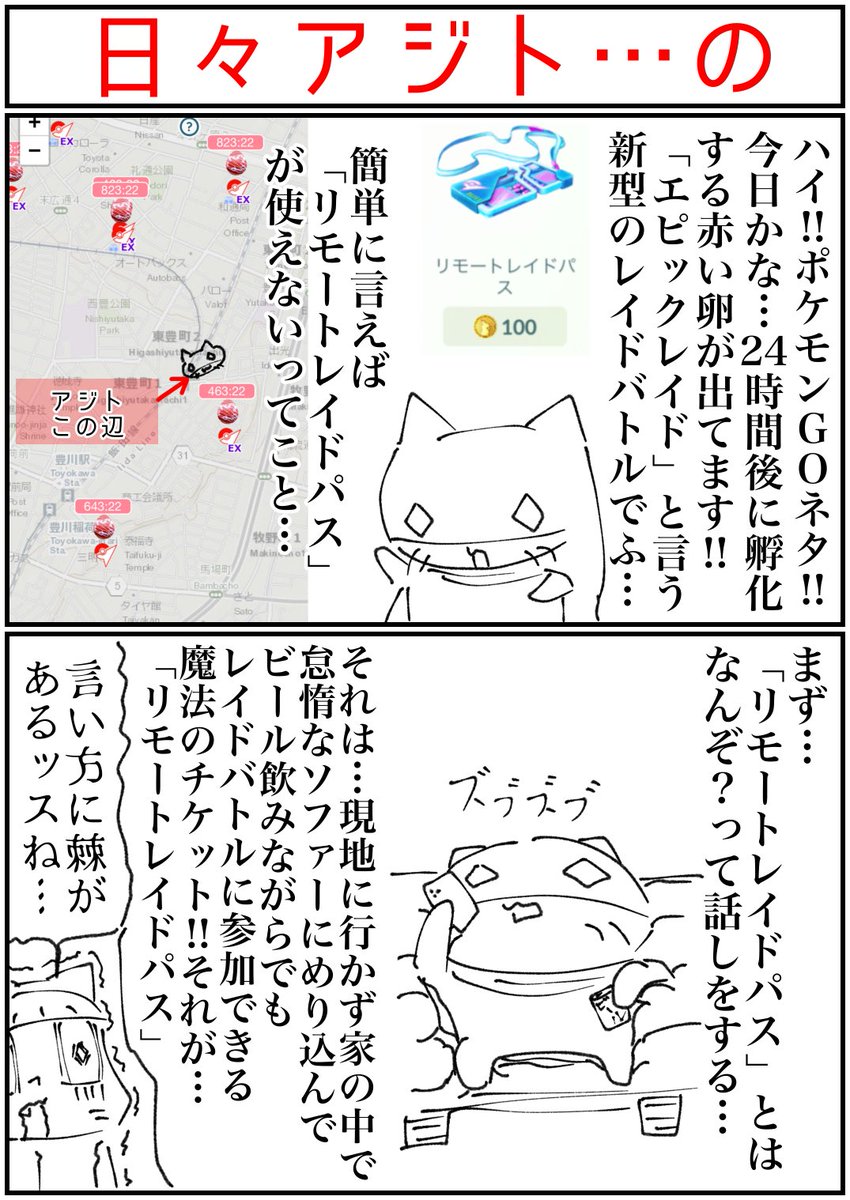 日々アジト…の
ハイ!!ポケモンGOネタ!!
今日かな…24時間後に孵化
する赤い卵が出てます!!
「エピックレイド」と言う
新型のレイドバトルでふ…
リモートレイドパ
ス
100
簡単に言えば
「リモートレイドパス」
が使えないってこと…
+
−
?
EX
コローラ
Toyota
Corolla
日産
Nissan
823:22
EX
礼通公園
和通局
Post
Office
末広通4
823:22
EX
EX
オートバックス
Autobacs
バロー
Valor
西豊公園
Nishiyutaka
Park
東豊町2
Higashiyutaka
東豊町1
出光
アジト
この辺
463:22
EX
豊川駅
Toyokawa
Sta
31
Iida Line
商工会議所
643:22
豊川稲荷
Sta
Taifuku-ji
Temple
三明
馬場町
Bambacho
さと
Sato
5
タイヤ館
Taiyakan
まず…
「リモートレイドパス」とは
なんぞ?って話しをする…
ズブズブ
それは…現地に行かず家の中で
怠惰なソファーにめり込んで
ビール飲みながらでも
レイドバトルに参加できる
魔法のチケット!!それが…
「リモートレイドパス」
言い方に棘が
あるッスね…